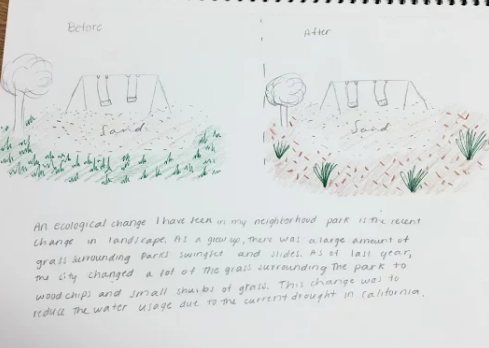 Before
After
Sand
Sand
An ecological change I have seen in my neighborhood park is the recent
change in landscape. As a grow up, there was a large amount of
grass surrounding parks swingset and slides. As of last year,
the city changed a lot of the grass surrounding the park to
wood chips and small shurbs of grass. This change was to
reduce the water usage due to the current drought in California.